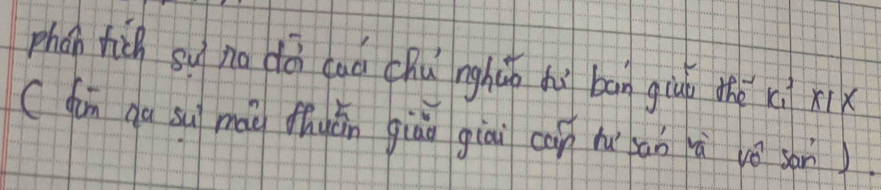 phân tích sự ra đời của chủ nghĩa tư bản giữa thế kỉ XIX
( tìm ra sự mâu thuẫn giữa giai cấp tư sản và vô sản ).